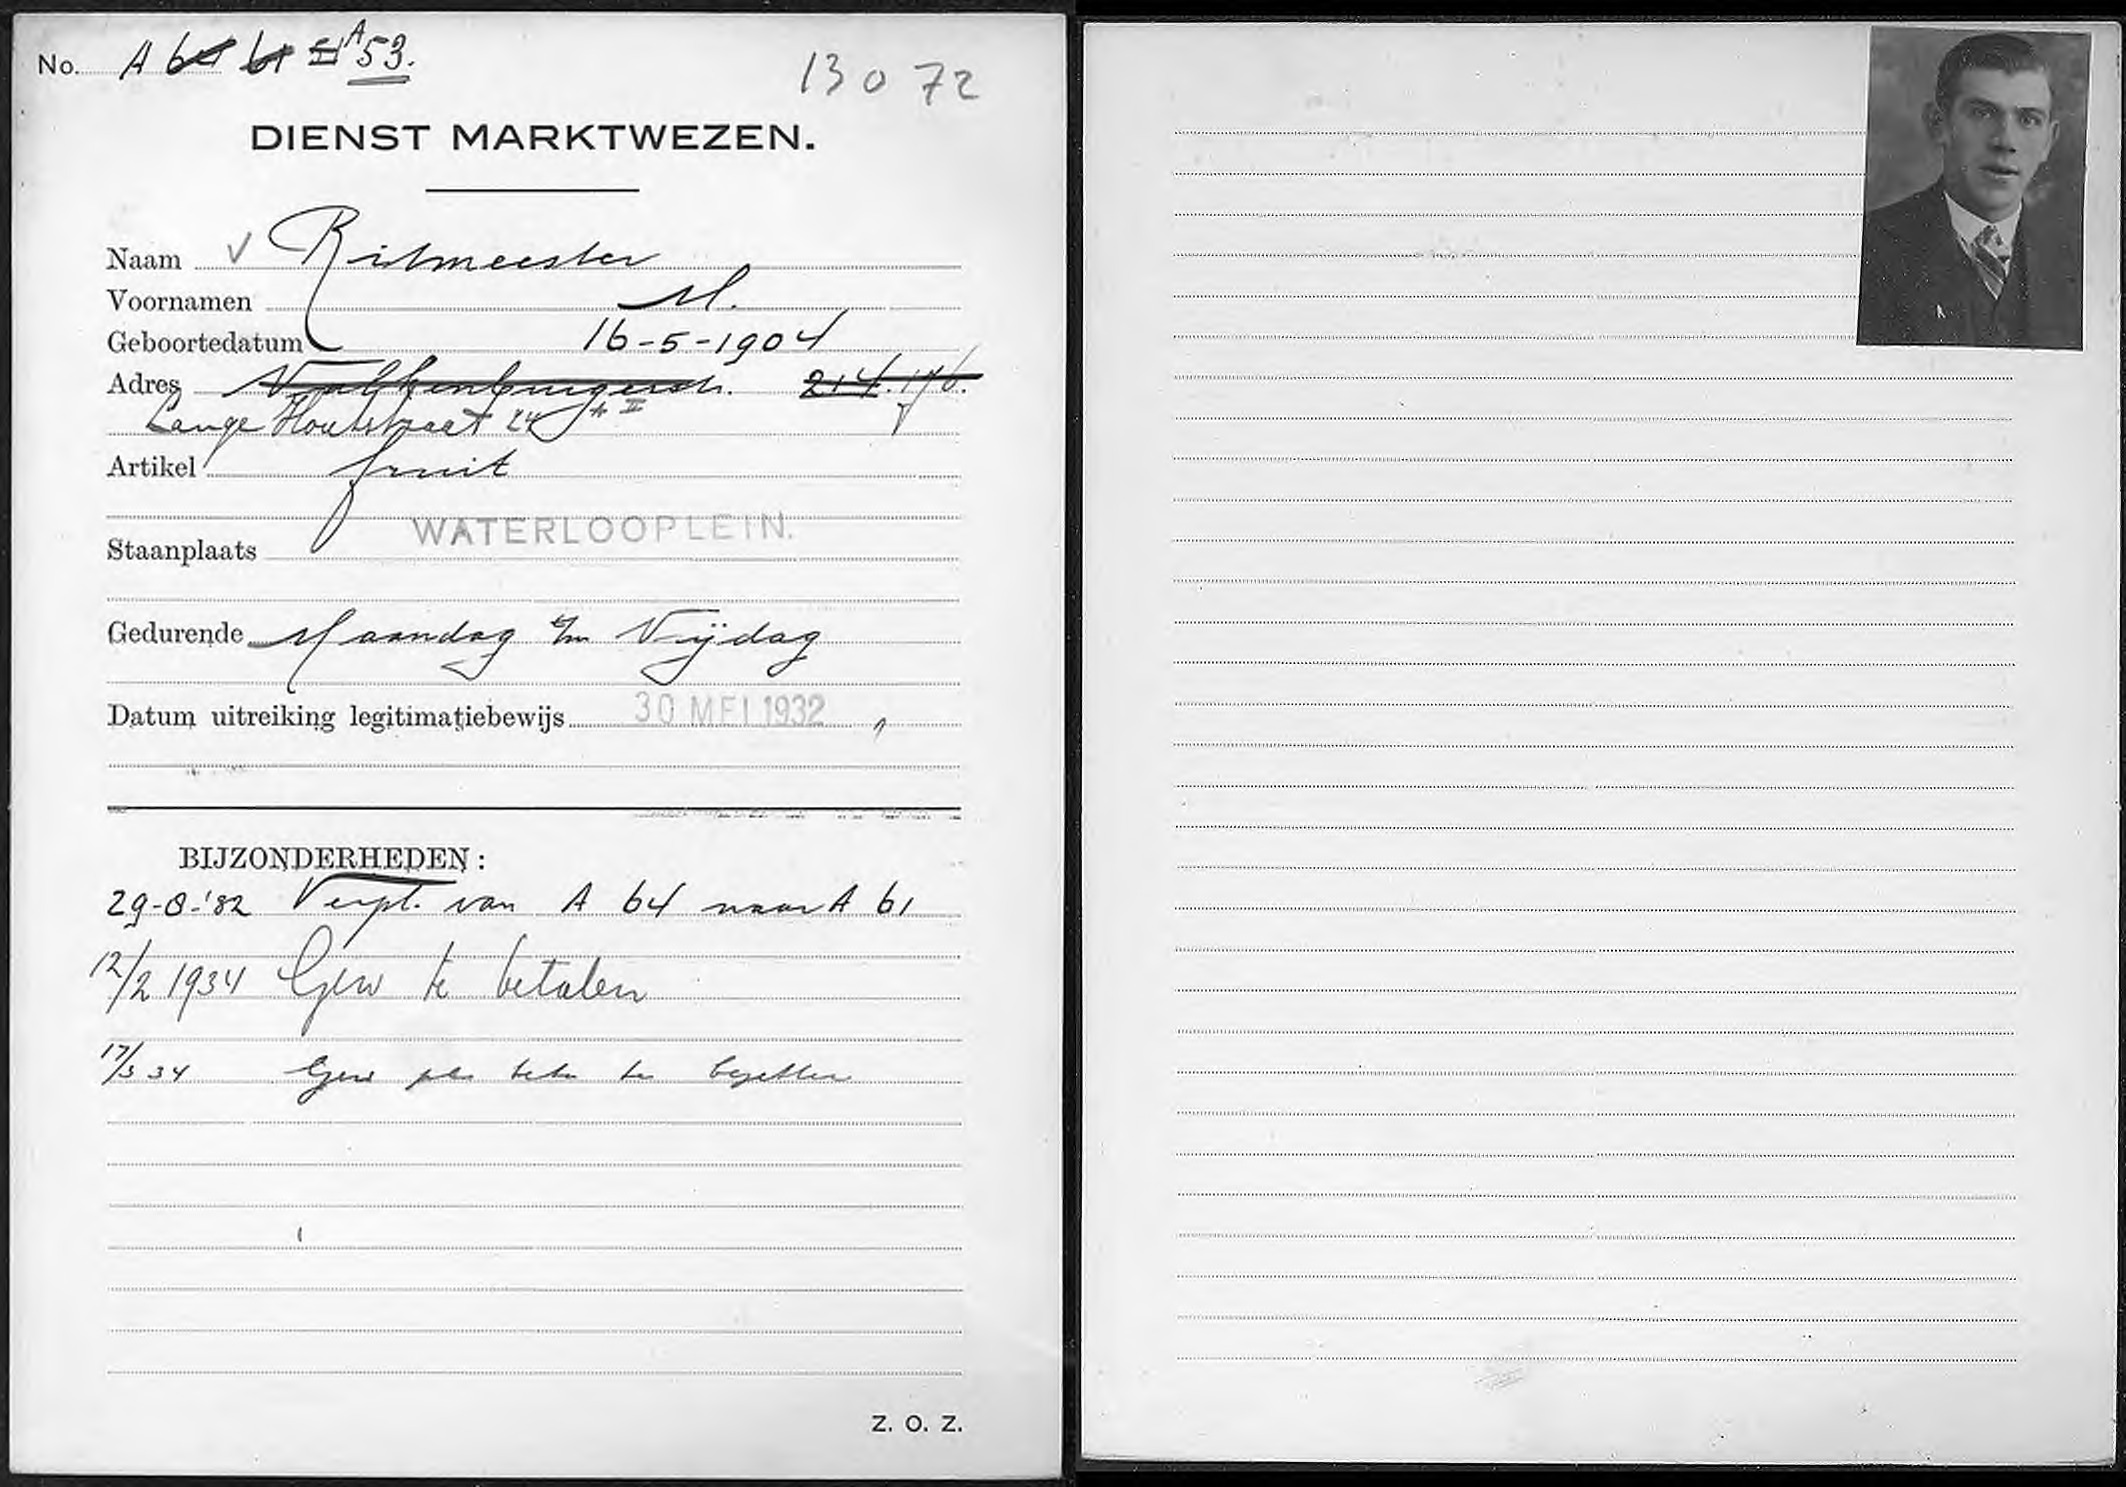 No. A 64 61 51 A 53.
13072
DIENST MARKTWEZEN.
Naam V Ritmeester
Voornamen M.
Geboortedatum 16-5-1904
Adres Valkenburgerstr. 214. 176.
Lange Houtstraat 24 II
Artikel fruit
WATERLOOPLEIN.
Staanplaats
Gedurende Maandag t/m Vrijdag
Datum uitreiking legitimatiebewijs 30 MEI 1932
BIJZONDERHEDEN:
29-8-'32 Verpl. van A 64 naar A 61
12/2 1934 Gew te betalen
17/3 34 Gew pls beter te bezetten
Z. O. Z.